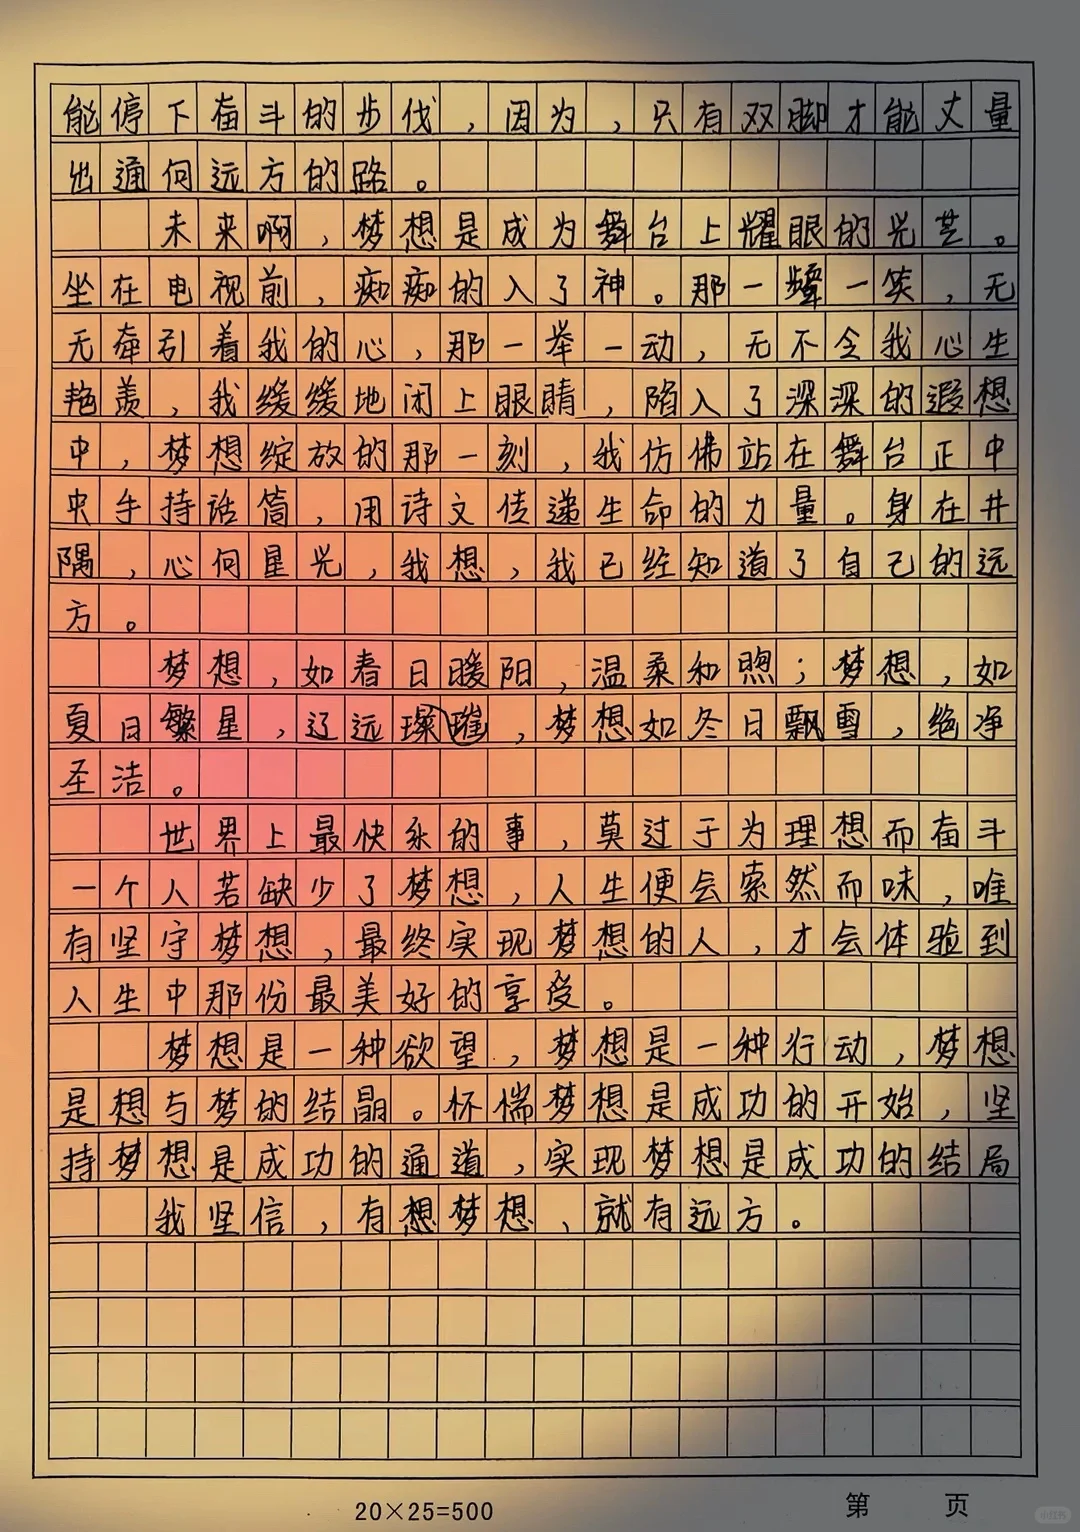 能停下奋斗的步伐，因为，只有双脚才能丈量
出通向远方的路。
未来啊，梦想是成为舞台上耀眼的光芒。
坐在电视前，痴痴的入了神。那一颦一笑，无
无牵引着我的心，那一举一动，无不令我心生
艳羡，我缓缓地闭上眼睛，陷入了深深的遐想
中，梦想绽放的那一刻，我仿佛站在舞台正中
央手持话筒，用诗文传递生命的力量。身在井
隅，心向星光，我想，我已经知道了自己的远
方。
梦想，如春日暖阳，温柔和煦；梦想，如
夏日繁星，辽远璀璨，梦想如冬日飘雪，绝净
圣洁。
世界上最快乐的事，莫过于为理想而奋斗
一个人若缺少了梦想，人生便会索然而味，唯
有坚守梦想，最终实现梦想的人，才会体验到
人生中那份最美好的享受。
梦想是一种欲望，梦想是一种行动，梦想
是想与梦的结晶。怀揣梦想是成功的开始，坚
持梦想是成功的通道，实现梦想是成功的结局
我坚信，有想梦想、就有远方。
20×25=500
第 页
小红书